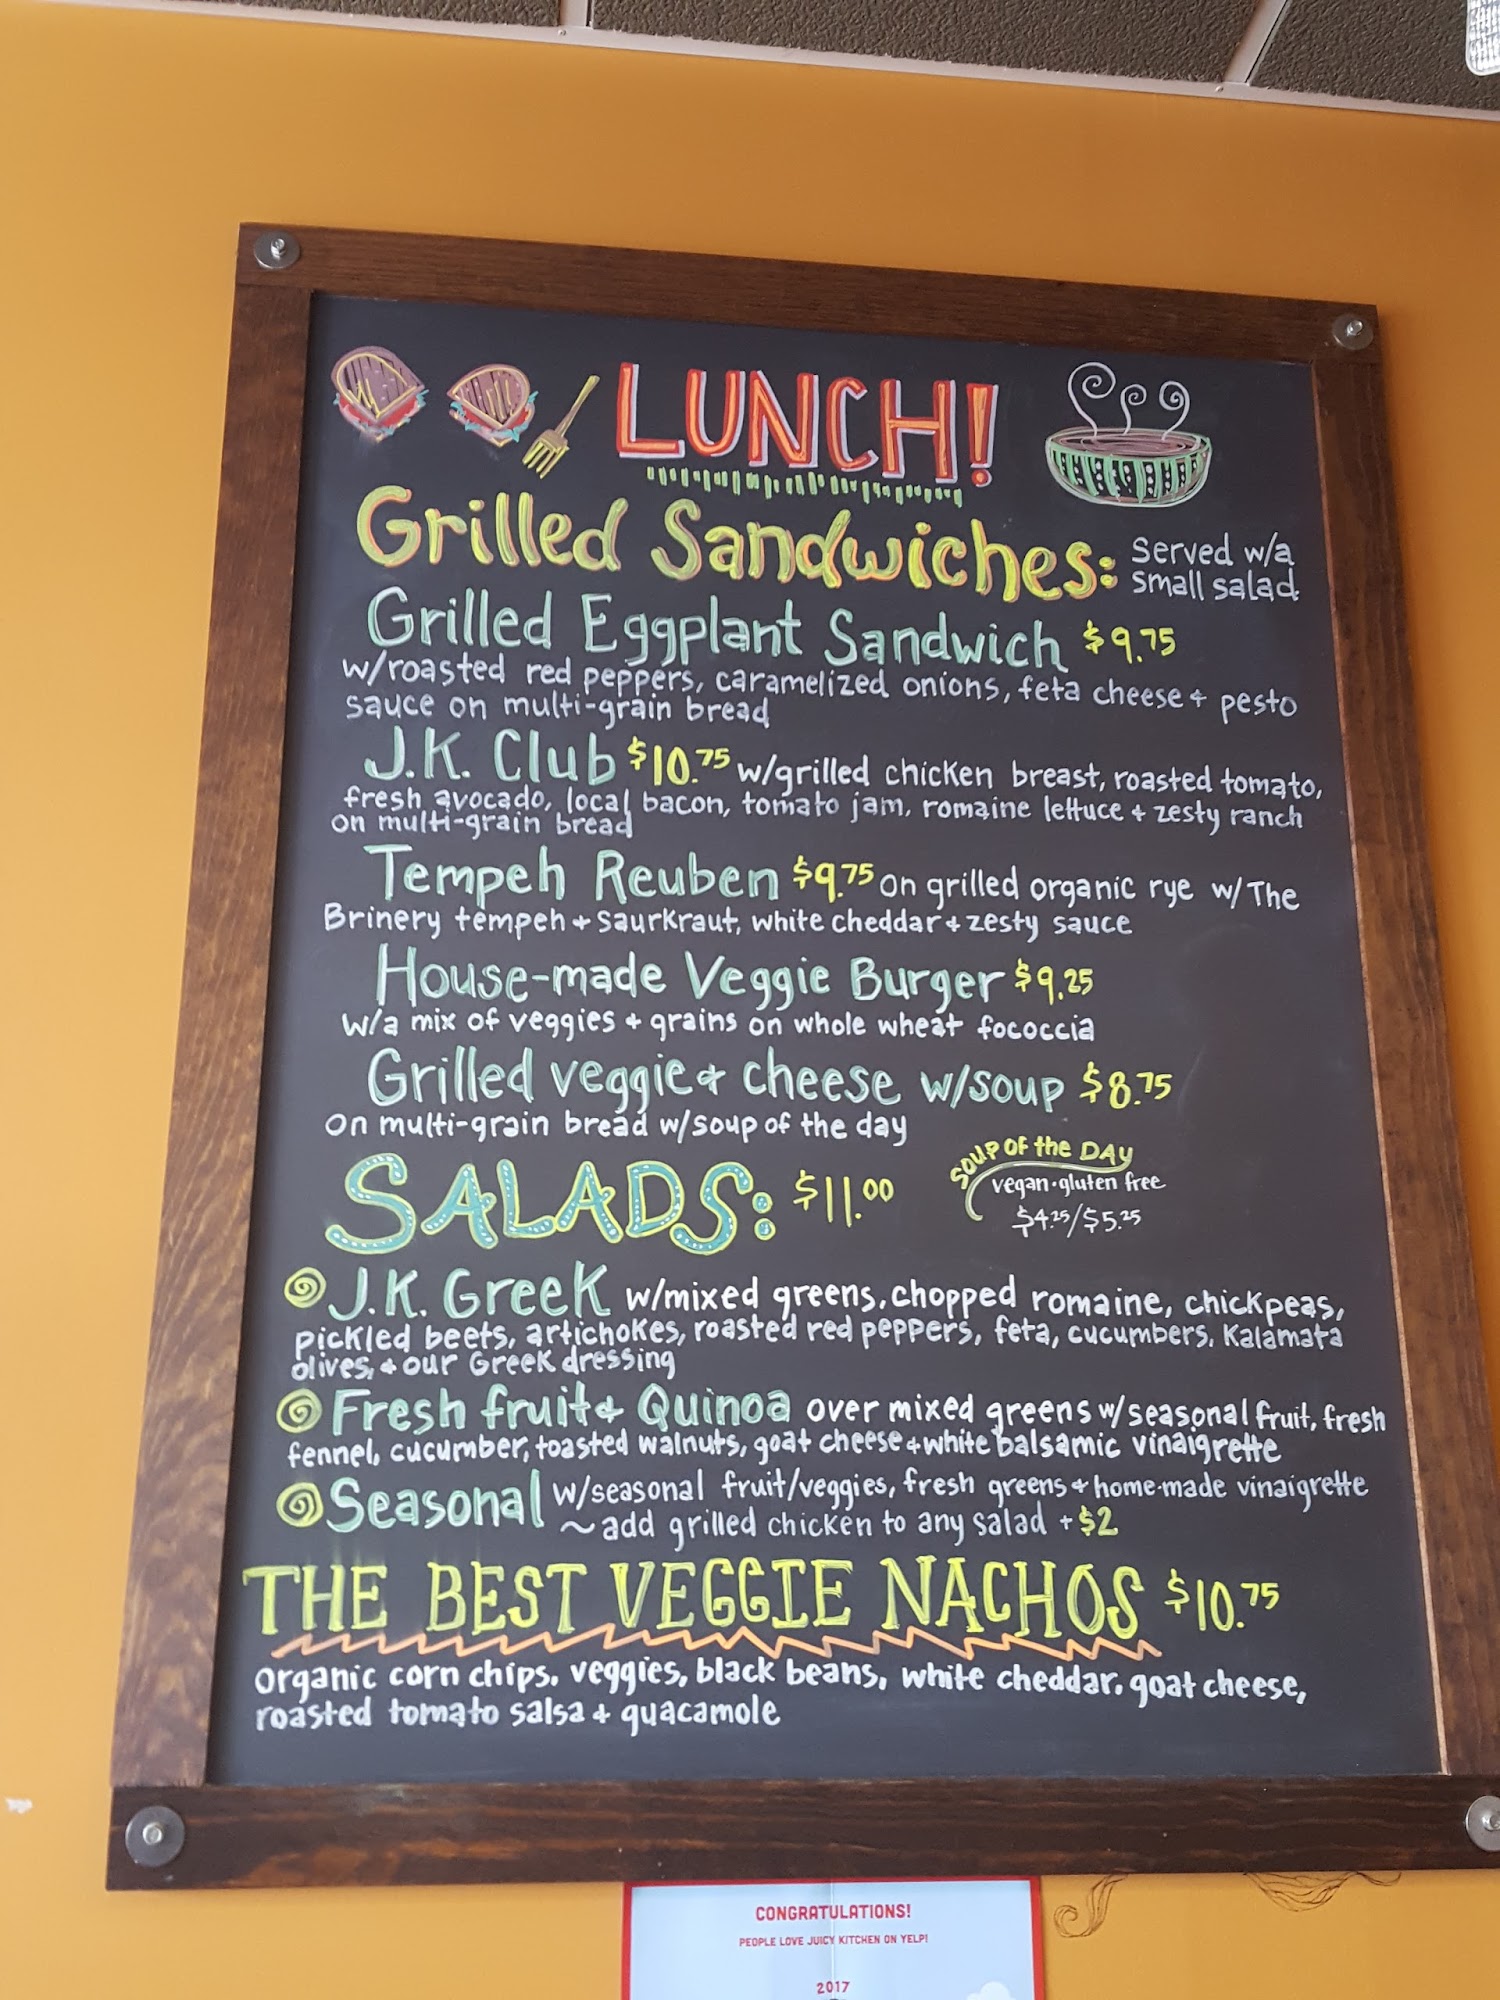 LUNCH!
Grilled Sandwiches: served w/a
small salad
Grilled Eggplant Sandwich $9.75
w/roasted red peppers, caramelized onions, feta cheese + pesto
sauce on multi-grain bread
J.K. Club $10.75 w/grilled chicken breast, roasted tomato,
fresh avocado, local bacon, tomato jam, romaine lettuce + zesty ranch
on multi-grain bread
Tempeh Reuben $9.75 on grilled organic rye w/ The
Brinery tempeh + saurkraut, white cheddar + zesty sauce
House-made Veggie Burger $9.25
w/a mix of veggies + grains on whole wheat fococcia
Grilled veggie + cheese w/soup $8.75
on multi-grain bread w/soup of the day
SALADS: $11.00
SOUP OF the DAY
vegan·gluten free
$4.25/$5.25
J.K. Greek w/mixed greens, chopped romaine, chickpeas,
pickled beets, artichokes, roasted red peppers, feta, cucumbers, Kalamata
olives, + our Greek dressing
Fresh fruit + Quinoa over mixed greens w/seasonal fruit, fresh
fennel, cucumber, toasted walnuts, goat cheese + white balsamic vinaigrette
Seasonal w/seasonal fruit/veggies, fresh greens + home-made vinaigrette
~add grilled chicken to any salad +$2
THE BEST VEGGIE NACHOS $10.75
organic corn chips, veggies, black beans, white cheddar, goat cheese,
roasted tomato salsa + guacamole
CONGRATULATIONS!
PEOPLE LOVE JUICY KITCHEN ON YELP!
2017